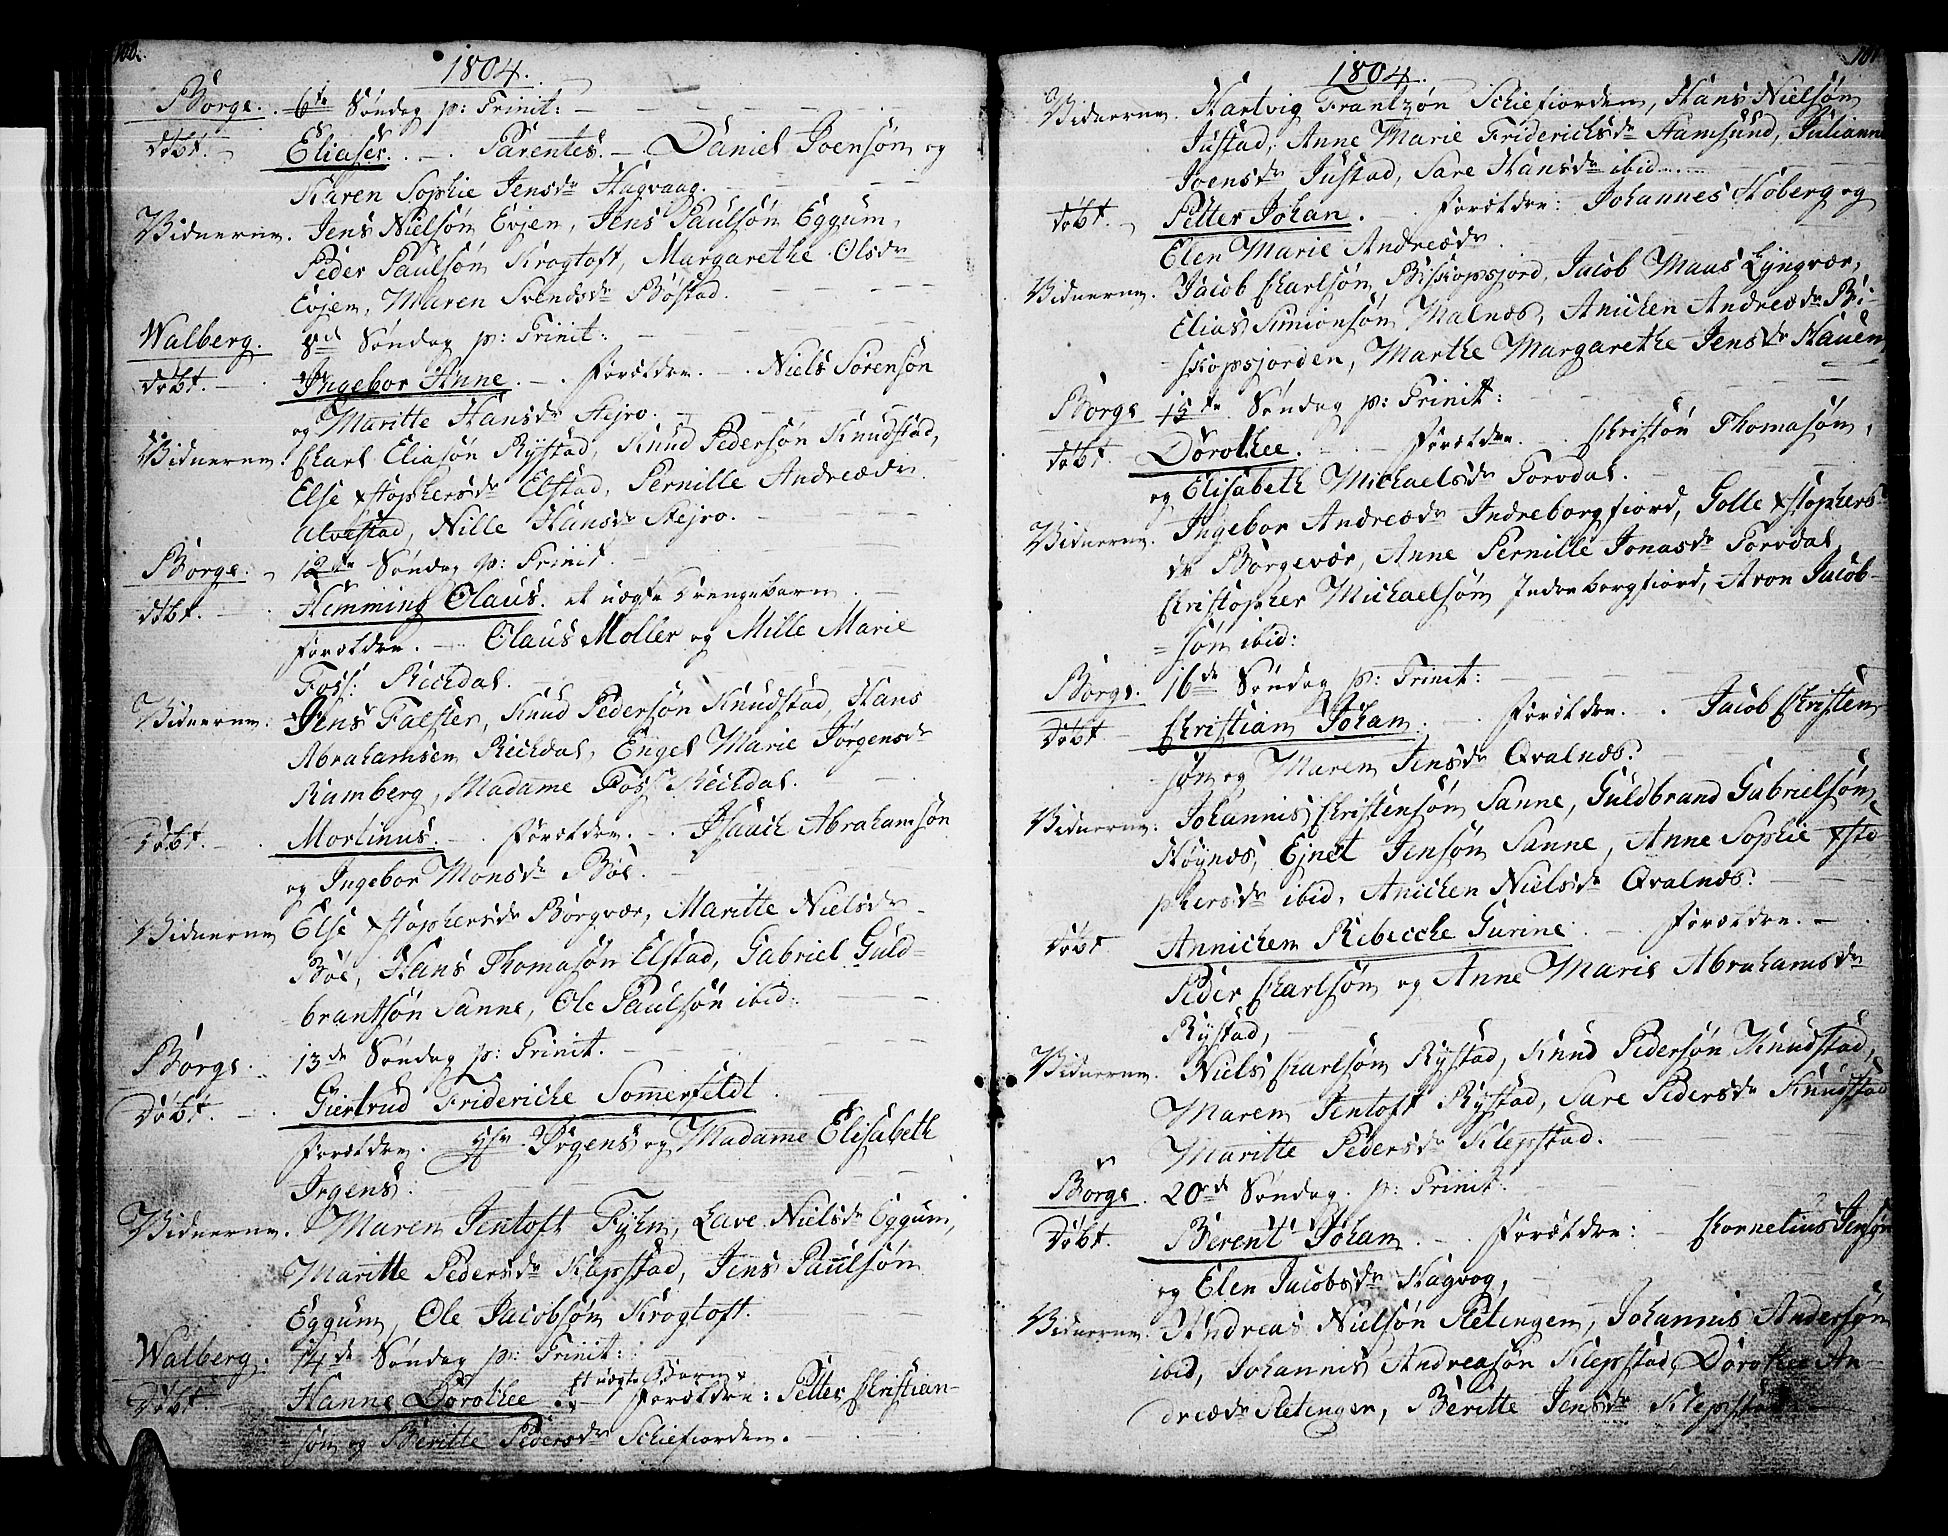 100.
1804.
Borge. 6te Søndag p: Trinit:
døbt. Eliaser. Parentes. Daniel Joensøn og
Karen Sophie Jensdr Hagvaag.
Vidnerne. Jens Nielsøn Evjen, Jens Paulsøn Eggum,
Peder Paulsøn Krogtoft, Margarethe Olsdr
Evjen, Maren Svendsdr Bøstad.
Walberg. 8de Søndag p: Trinit:
døbt. Ingebor Anne. Forældre. Niels Sørensøn
og Maritte Hansdr Stejro.
Vidnerne. Charl Eliasøn Rystad, Knud Pedersøn Knudstad,
Else xstophersdr Elstad, Pernille Andreædr
Alvestad, Nille Hansdr Stejro.
Borge. 12te Søndag p: Trinit.
døbt. Hemming Olaus. et uægte Drengebarn
Forældre. Olaus Moller og Mille Marie
Foss: Reckdal.
Vidnerne. Jens Falster, Knud Pedersøn Knudstad, Hans
Abrahamsen Reckdal, Engel Marie Jørgensdr
Ramberg, Madame Foss Reckdal.
Døbt. Mortinus. Forældre. Isaach Abrahamsøn
og Ingebor Monsdr Bøe.
Vidnerne Else xstophersdr Borgvær, Maritte Nielsdr
Bøe, Hans Thomasøn Elstad, Gabriel Guld-
brantsøn Sanne, Ole Paulsøn ibid:
Borge. 13de Søndag p: Trinit.
Døbt. Giertrud Fridericke Somerfeldt
Forældre. Hr Ørgens og Madame Elisabeth
Irgens:
Vidnerne. Maren Jentoft Fyhn, Lave Nielsdr Eggum,
Maritte Pedersdr Klepstad, Jens Paulsøn
Eggum, Ole Jacobsøn Krogtoft.
Walberg. 14de Søndag p: Trinit:
et uægte Barn
Døbt. Hanne Dorothee Forældre: Petter Christian-
søn og Beritte Pedersdr Schiefiorden.
101
1804.
Vidnerne. Hartvig Frantzøn Schiefiorden, Hans Nielsøn
Justad, Anne Marie Friderichsdr Stamsund, Juliana
Joensdr Justad, Sare Hansdr ibid
døbt. Petter Johan. Forældre: Johannes Hoberg og
Elen Marie Andreædr
Vidnerne. Jacob Charlsøn Biskopsjord, Jacob Maas Lyngvær,
Elias Simonsøn Malnæs, Anichen Andreædr Bi-
skopsjorden, Marthe Margarethe Jensdr Hauen
Borge 15de Søndag p: Trinit:
døbt. Dorothee. Forældre. Christøn Thomasøn,
og Elisabeth Michaelsdr Torvdal.
Vidnerne. Ingebor Andreædr Indreborgfiord, Golle xstophers-
dr Borgevær, Anne Pernille Jonasdr Torvdal,
Christopher Michaelsøn Indreborgfiord, Aron Jacob-
søn ibid:
Borge. 16de Søndag p: Trinit:
Døbt Christian Johan. Forældre. Jacob Christen
søn og Maren Jensdr Qvalnæs.
Vidnerne: Johannis Christensøn Sanne, Guldbrand Gabrielsøn
Høynæs, Ejnet Jensøn Sanne, Anne Sophie xsto
phersdr ibid, Anichen Nielsdr Qvalnæs.
Døbt Annichen Rebecche Gurine Forældre.
Peder Charlsøn og Anne Marie Abrahamsdr
Rystad,
Vidnerne. Niels Charlsøn Rystad, Knud Pedersøn Knudstad,
Maren Jentoft Rystad, Sare Pedersdr Knudstad
Maritte Pedersdr Klepstad.
Borge. 20de Søndag p: Trinit.
Døbt. Berent Johan Forældre: Cornelius Jensøn
og Elen Jacobsdr Hagvog,
Vidnerne. Andreas Nielsøn Petingen, Johannis Andersøn
ibid, Johannis Andreasøn Klepstad, Dorothee An-
dreædr Petingen, Beritte Jensdr Klepstad